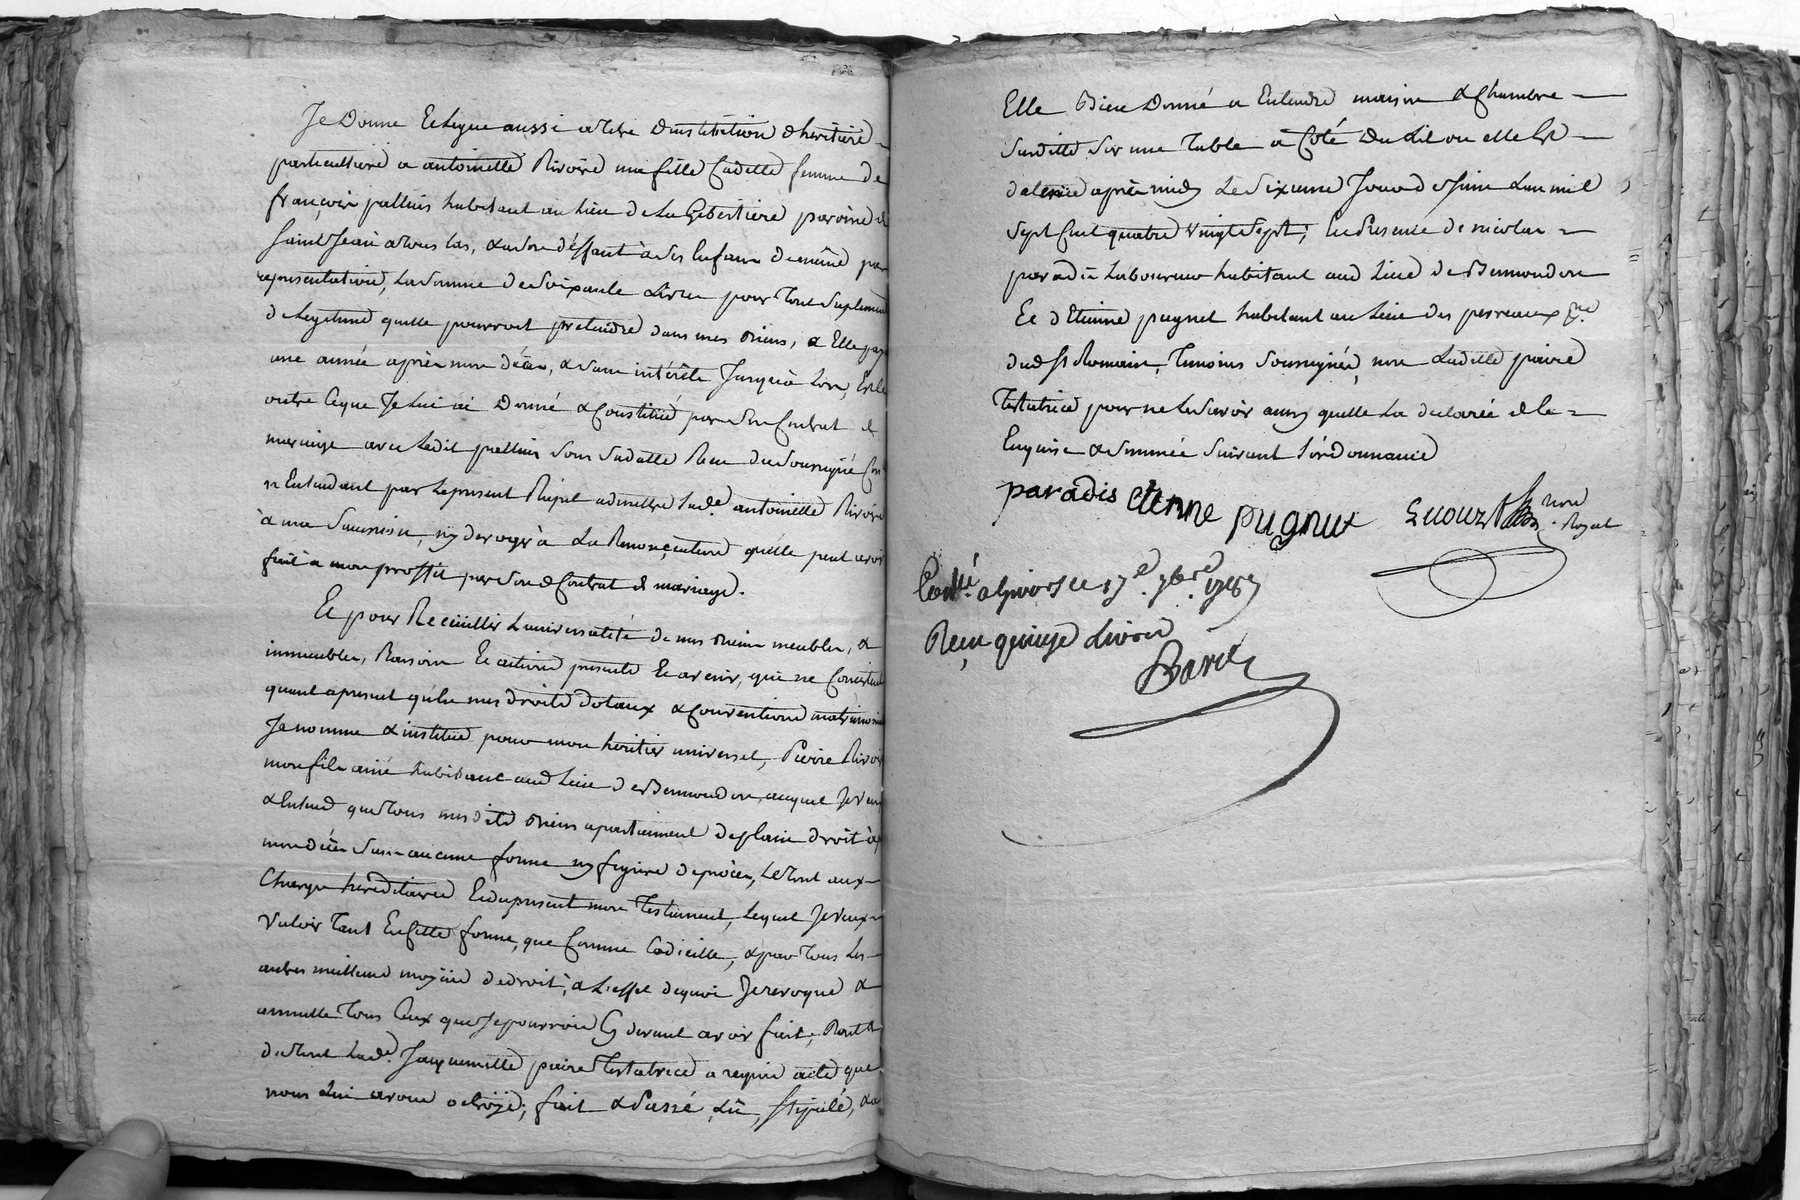 Je Donne Et Legue aussi a titre D'institution d'heritiere
particulliere a antoinette Rivoire ma fille Cadette femme de
françois palluis habitant au Lieu de La Gibertiere paroisse de
Saint Jean a tous las, & a son deffaut à ses Enfans de même par
representation, La Somme de Soixante Livres pour Tout Suplement
de Legitime quelle pourroit pretendre dans mes Biens, & Elle payé
une année après mon décès, & sans intérêts Jusqu'à Lors, Et le
outre Ceque Je Lui ai Donné & Constitué par Son Contrat de
mariage avec Ledit palluis Sous Sadatte Recu du Soussigné
n Entendant par Le present Rapel admettre lad.e antoinette Rivoire
à ma Succession, ny deroger à La Renonciation quelle peut avoir
fait à mon proffit par Son d Contrat de mariage.
Et pour Recüillir L'universalité de mes Biens meubles, &
immeubles, Raisons Et actions presents Et avenir, qui ne Consistent
quant apresent qu'en mes droits dotaux & Conventions matrimoniales
Je nomme & institue pour mon heritier universel, Pierre Rivoire
mon fils ainé habitant aud Lieu de Bermondon, auquel Je veux
& Entend que Tous mes dits Biens apartiennent de plain droit à
mon décès Sans aucune forme ny figure de procès, Le Tout aux
Charges hereditaires Et du present mon Testament, Lequel Je Veux
Valoir Tant En Cette forme, que Comme Codicille, & par Tous Les
autres meilleurs moyens de droit; a L'effet dequoi Je revoque &
annulle Tous Ceux que Je pourrois Cy devant avoir fait,
du Tout Lad.e Jacquemette paire Testatrice a requis acte que
nous Lui avons octroyé; fait & Passé, Lû, Stipulé, &a
Elle Bien Donné a Entendre maison & Chambre
Susditte Sur une Table a Coté Du Lit ou elle Est
après midy Le Sixieme Jour d Juin L'an mil
Sept Cent quatre Vingt Sept; En Presence de nicolas
paradis Laboureur habitant aud Lieu de Bermondon
Et d'Etienne pugnet habitant au Lieu des perreaux p.sse
dud St Romain, Temoins Soussignés, non Laditte paire
Testatrice pour ne Le Savoir ainsy quelle La declarée de Ce
Enquise & Sommée Suivant L'ordonnance
paradis etienne pugnet nore Royal
Con.lé a Givors le 17.e 7bre. 1787
Reçu quinze Livres